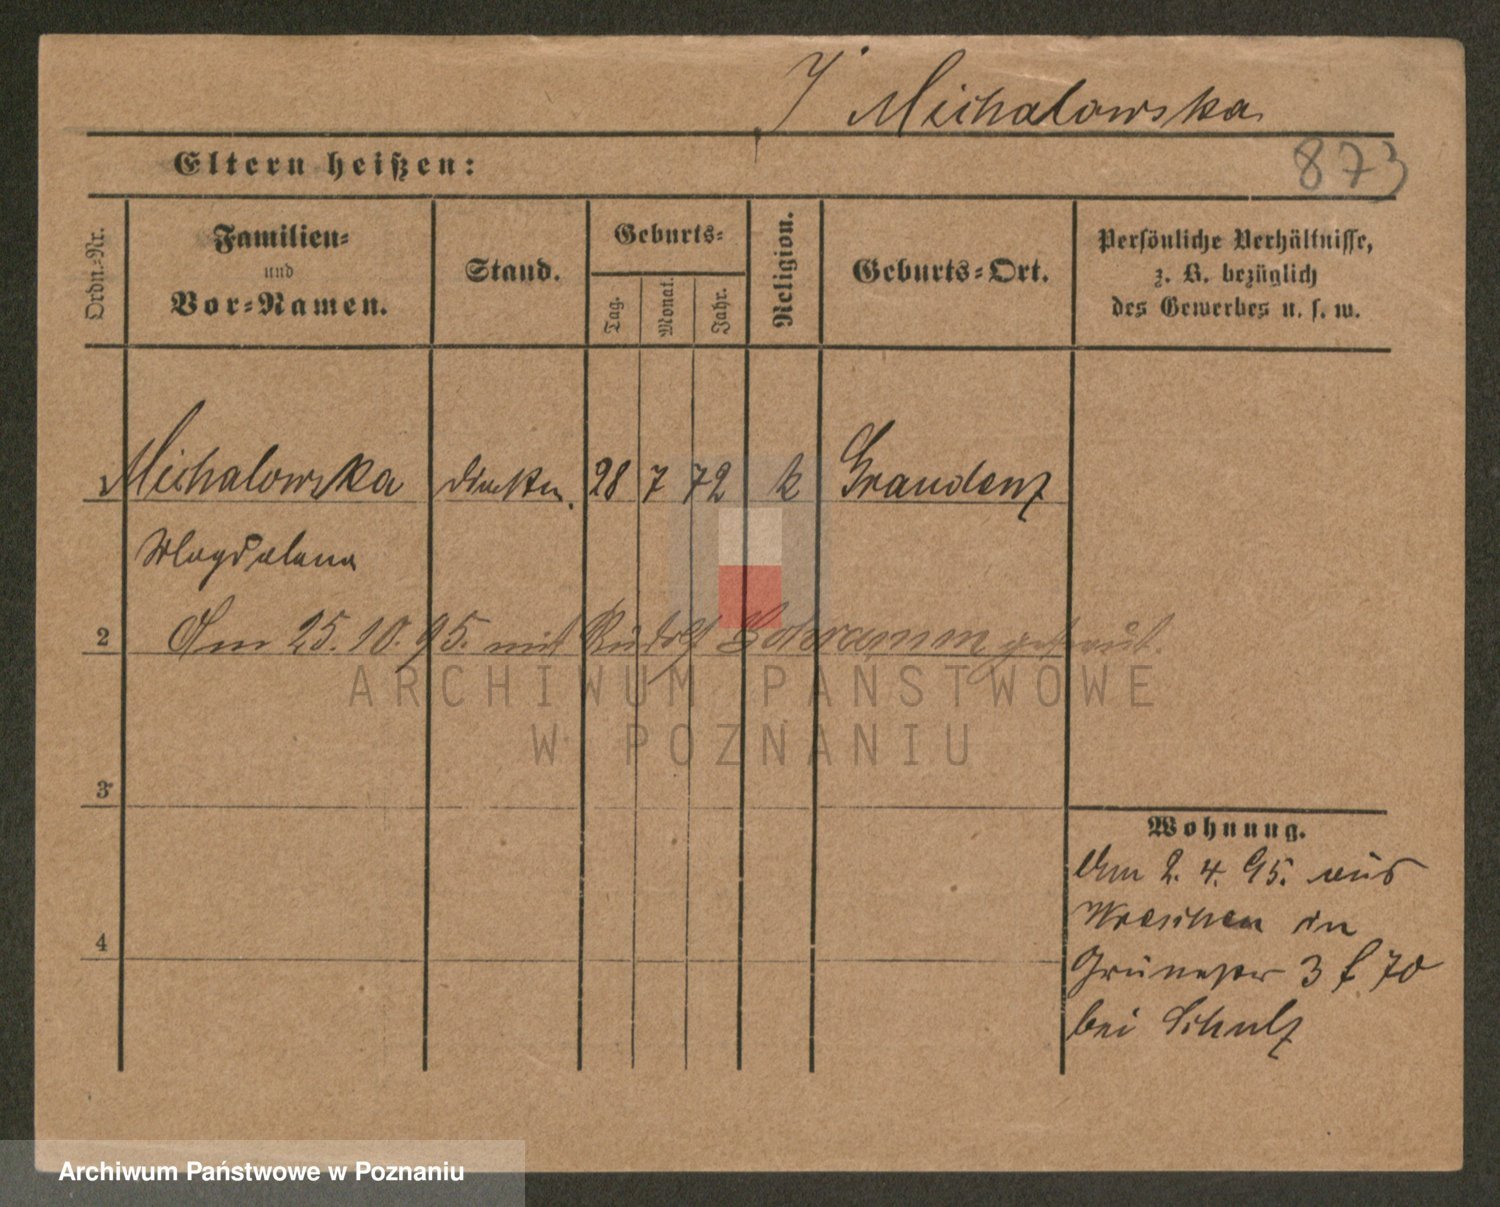 Michalowska
873
Eltern heißen:
Ordn.-Nr.
Familien-
und
Vor-Namen.
Stand.
Geburts-
Tag.
Monat.
Jahr.
Religion.
Geburts-Ort.
Persönliche Verhältnisse,
z. B. bezüglich
des Gewerbes u. s. w.
1 Michalowska 28 7 72 k Graudenz
Magdalena
2 Am 25.10.95. mit Rudolf Schramm getraut.
ARCHIWUM PAŃSTWOWE
W POZNANIU
3
Wohnung.
Am 2. 4. 95. aus
Wreschen in
Grünestr 3 f 70
bei Schulz
4
Archiwum Państwowe w Poznaniu